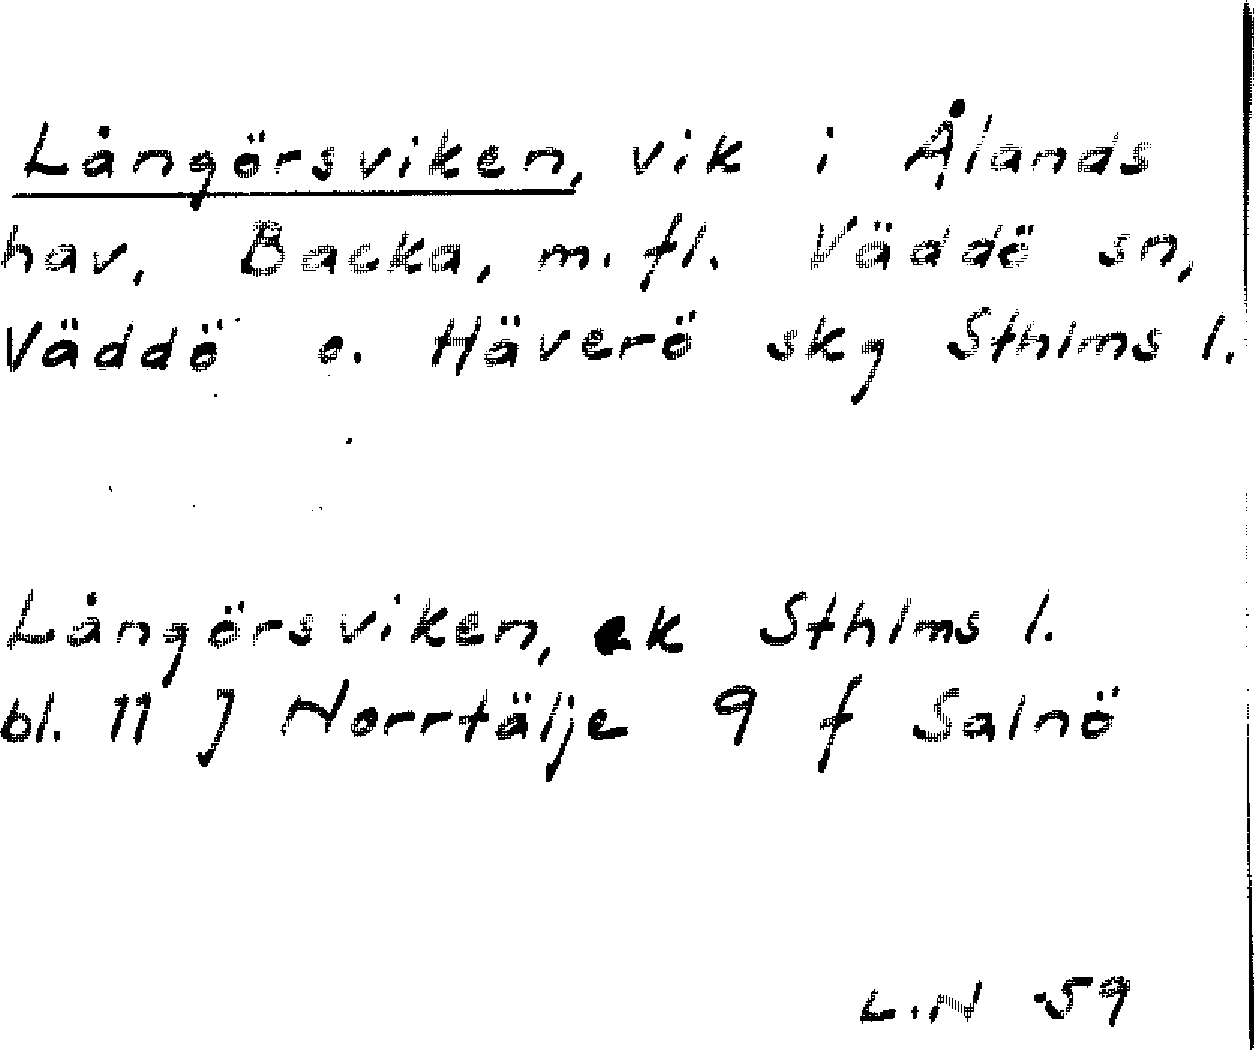 Långörsviken, vik i Ålands
hav, Backa, m.fl. Väddö sn,
Väddö o. Häverö skg Sthlms l.
Långörsviken, ek Sthlms l.
bl. 11 J Norrtälje 9 f Salnö
L.N 59